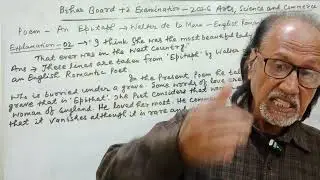 Bihar Board +2 Examination - 2026 Arts, Science and Commerce
Poem - An Epitaph → Walter de la Mare - English Roman
Explanation - 02 → "I think She was the most beautiful lady
That ever was in the West Country"
Ans → These lines are taken from 'Epitaph' by Walter
an English Romantic Poet
In the Present, poem he ta
who is burried under a grave. Some words of love are
grave that is 'Epithal'. The Poet Considers that wo
woman of England. He loved her most. He comme
that it vanishes although it is rare and